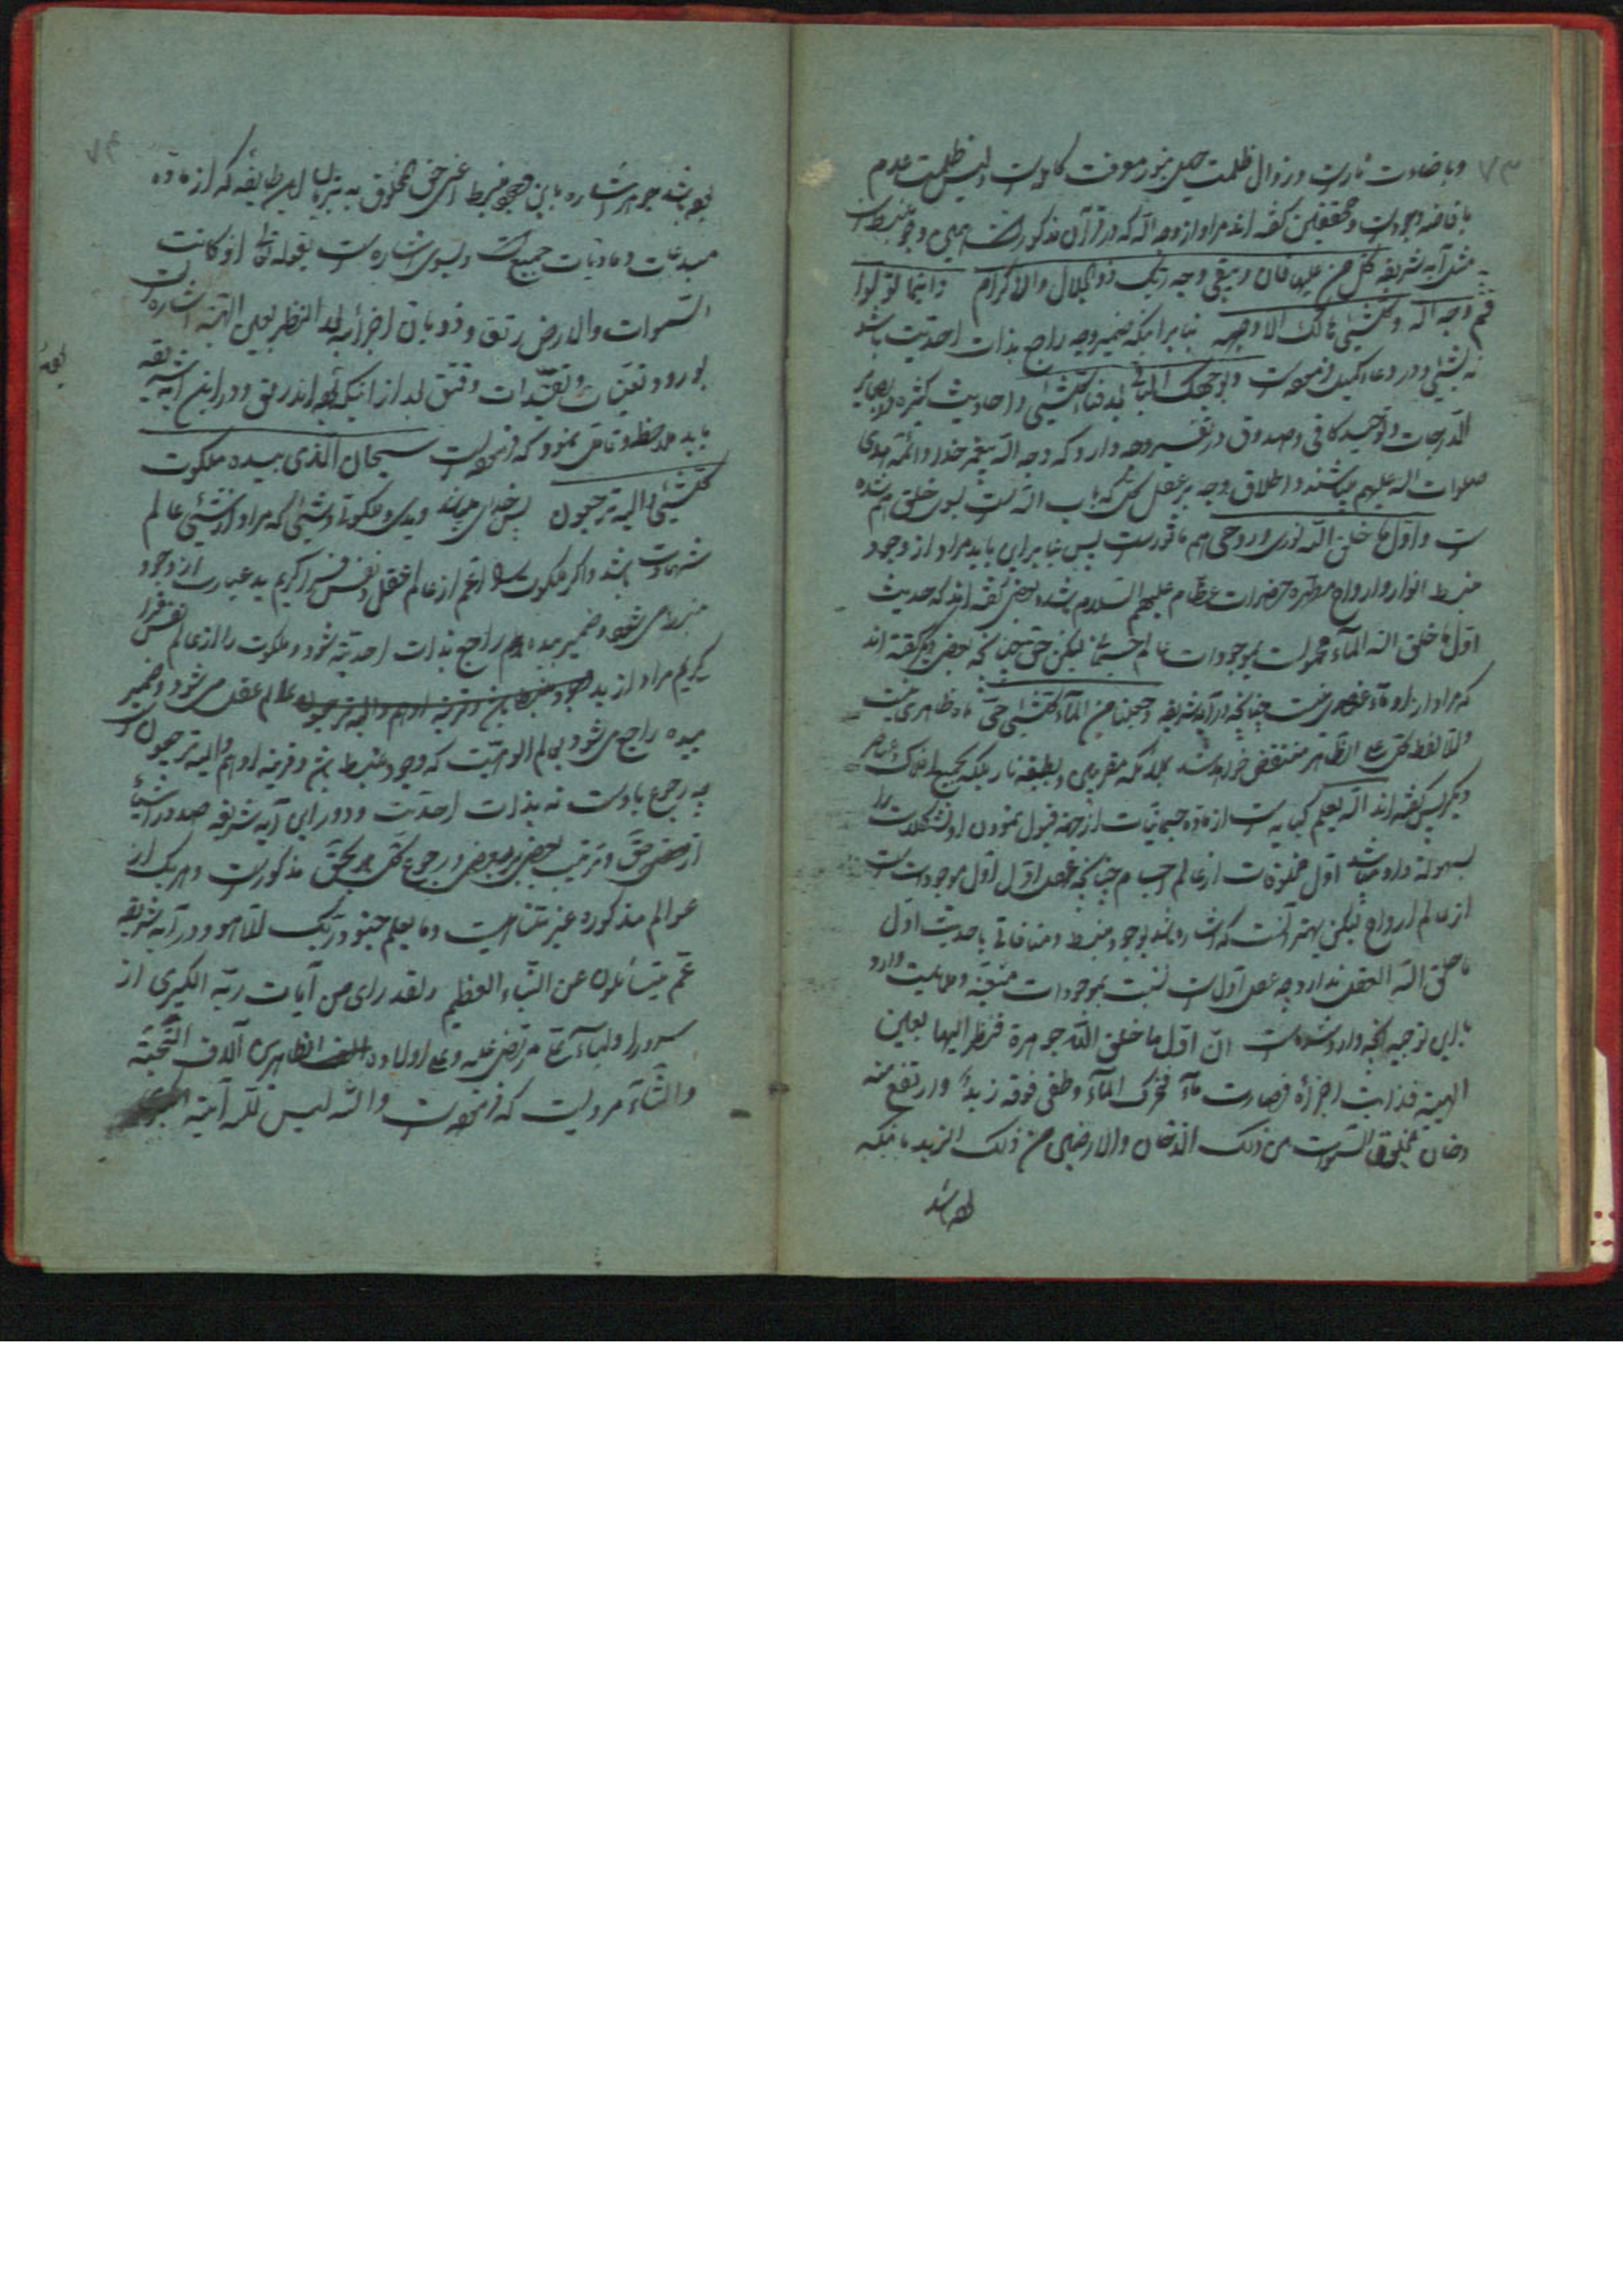 ۷۳
و باضاءت نار است و زوال ظلمت جهل بنور معرفت کامله است و لیس ظلمت عدم
بافاضه وجود است و محققین گفته اند مراد از وجه الله که در قرآن مذکور است همین وجود منبسط است
مثل آیه شریفه کل من علیها فان و یبقی وجه ربک ذو الجلال و الاکرام و اینما تولوا
فثم وجه الله و کلشیئ هالک الا وجهه بنابر اینکه ضمیر وجه راجع بذات احدیت باشد
نه بشیئ و در دعاء کمیل فرموده است و بوجهک الباقی بعد فناء کلشیئ و احادیث کثیره در بصایر
الدرجات و توحید کافی و صدوق در تفسیر وجه دارد که وجه الله پیغمبر خدا و ائمه هدی
صلوات الله علیهم میباشند و اطلاق وجه بر عقل کل که باب الله است بسوی خلق هم شده
است و اول ما خلق الله نوری و روحی هم ماثور است پس بنابراین باید مراد از وجود
منبسط انوار و ارواح مطهره حضرات عظام علیهم السلام باشد بعضی گفته اند که حدیث
اول ما خلق الله الماء محمول است بموجودات عالم جسمانی لیکن حق چنانکه بعضی دیگر گفته اند
که مراد از ماء عنصری نیست چنانکه در آیه شریفه و جعلنا من الماء کلشیئ حی ماء ظاهری نیست
و الا لفظ کل علی الظاهر منتقض خواهد شد بملائکه مقربین و بطبقه نار بلکه بجمیع افلاک و عناصر
دیگر پس گفته اند الله یعلم کنایه است از ماده جسمانیات از جهة قبول نمودن او تشکلات را
بسهولة و او میباشد اول مخلوقات از عالم اجسام چنانکه عقل اول اول موجودات است
از عالم ارواح لیکن بهتر آنست که اشاره باشد بوجود منبسط و منافاتی با حدیث اول
ما خلق الله العقل ندارد چه عقل اول است نسبت بموجودات متعینه و ماهیت دارد
باین توجیه آنچه وارد شده است ان اول ما خلق الله جوهرة فنظر الیها بعین
الهیبة فذابت اجزائه فصارت ماء فتحرک الماء و طفی فوقه زبد و ارتفع منه
دخان فخلق السموات من ذلک الدخان و الارضین من ذلک الزبد بانکه
۷۴
بوده باشد جوهر اشاره باین وجود منبسط اعنی حق مخلوق به بنزبان این طایفه که از ماده
مبدعات و مادیات جمیع است و بسوی اشاره است بقوله تعالی او کانت
السموات و الارض رتق و ذوبان اجزائه بعد النظر بعین الهیبة اشاره است
بورود تعینات و تقیدات و فتق بعد از اینکه بوده اند رتق و در این آیه شریفه
باید ملاحظه و تامل نمود که فرموده است سبحان الذی بیده ملکوت
کلشیئ و الیه ترجعون پس خدای و ید و ملکوة و شیئ که مراد از شیئ عالم
شهادت باشد و اگر ملکوت را اعم از عالم عقل و نفس فرا گیریم ید عبارت از وجود
منبسط می شود و ضمیر بیده هم راجع بذات احدیت شود و ملکوت را از عالم نفس فرا
گیریم مراد از ید عالم عقل می شود و ضمیر
بیده راجع می شود بعالم الوهیت که وجود منبسط بین و قرینه او هم و الیه ترجعون است
چه رجوع باوست نه بذات احدیت و در این آیه شریفه صدور اشیاء
از محض حق و ترتیب بعضی بر بعضی و رجوع کل بحق مذکور است و هر یک از
عوالم مذکوره غیر متناهیست و ما یعلم جنود ربک الا هو و در آیه شریفه
عم یتسائلون عن النباء العظیم و لقد رای من آیات ربه الکبری از
سرور اولیاء علی مرتضی علیه و علی اولاده الطاهرین آلاف التحیة
و الثناء مرویست که فرموده است و الله لیس لله آیة اکبر